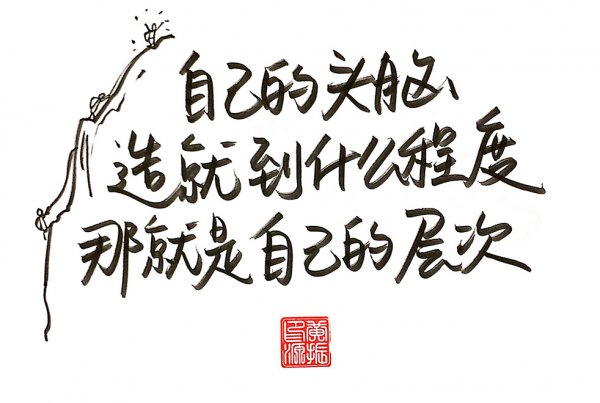 自己的头脑
造就到什么程度
那就是自己的层次
黄振源印